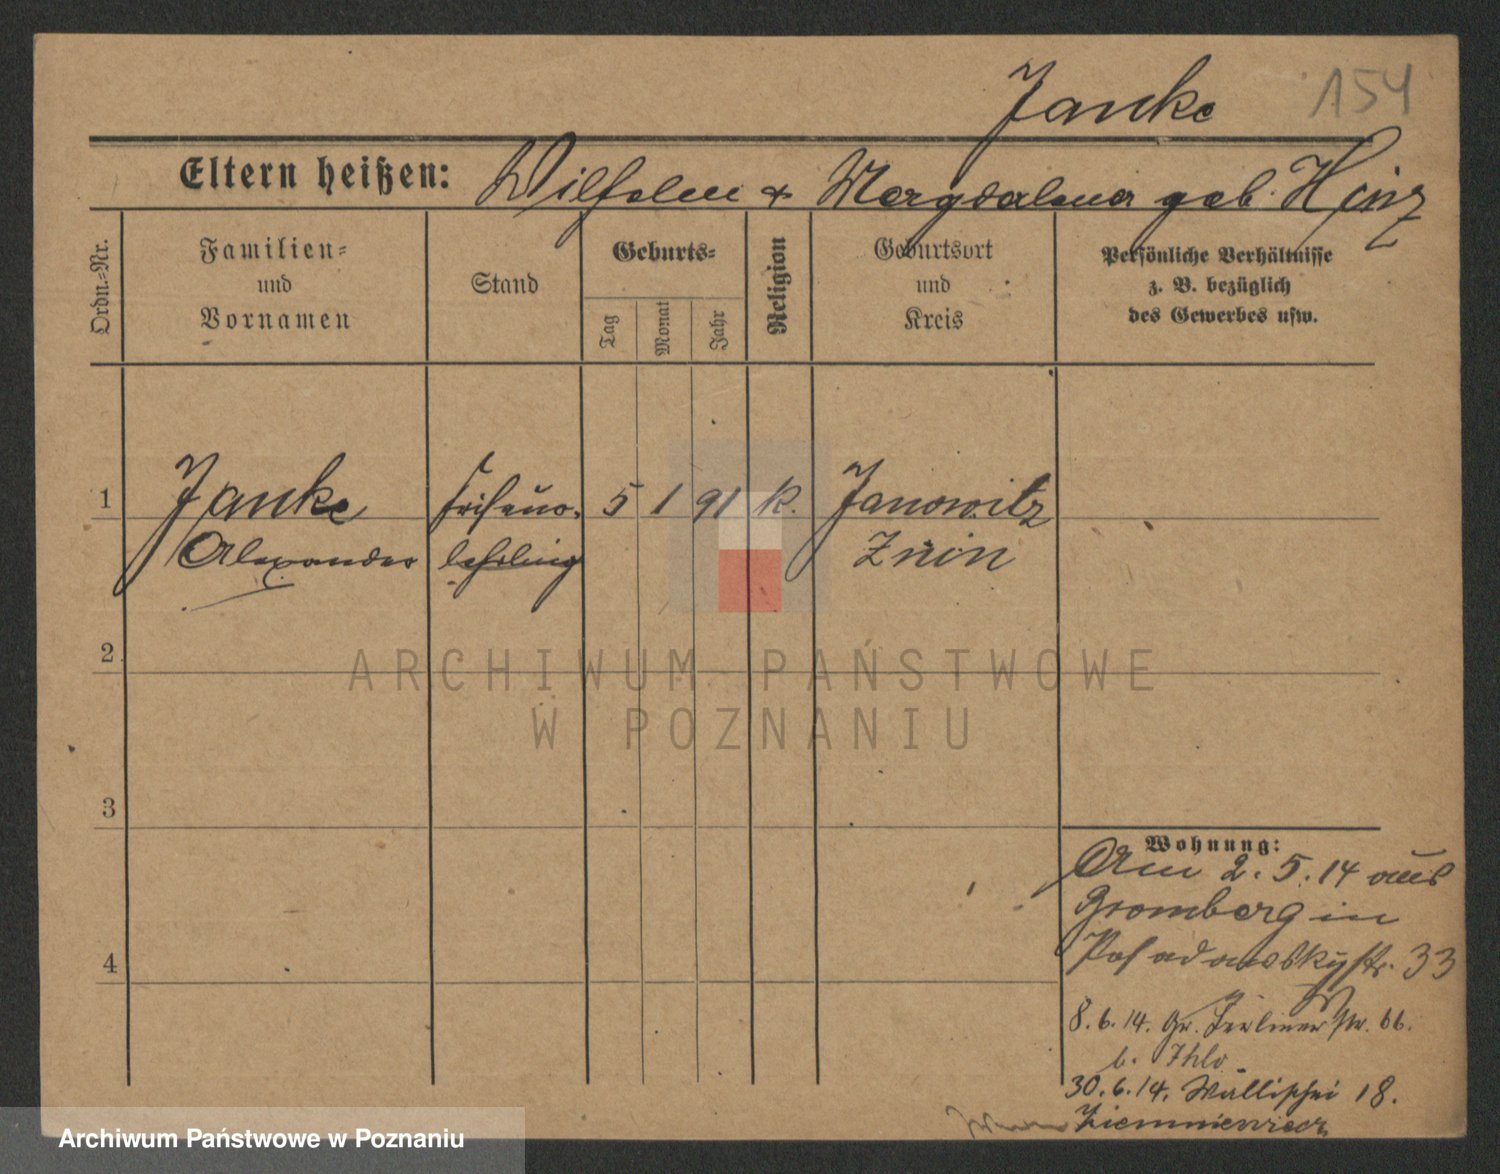 Janke
154
Eltern heißen: Wilhelm & Magdalena geb. Hinz
Ordn.=Nr.
Familien=
und
Vornamen
Stand
Geburts=
Tag
Monat
Jahr
Religion
Geburtsort
und
Kreis
Persönliche Verhältnisse
z. B. bezüglich
des Gewerbes usw.
1 Janke Friseur- 5 1 91 k. Janowitz
Alexander lehrling Znin
2
3
4
Wohnung:
Am 2.5.14 aus
Bromberg in
Posadowskystr. 33
8.6.14. Gr. Berliner Str. 66.
b.
30.6.14. Wallischei 18.
ARCHIWUM PAŃSTWOWE
W POZNANIU
Archiwum Państwowe w Poznaniu